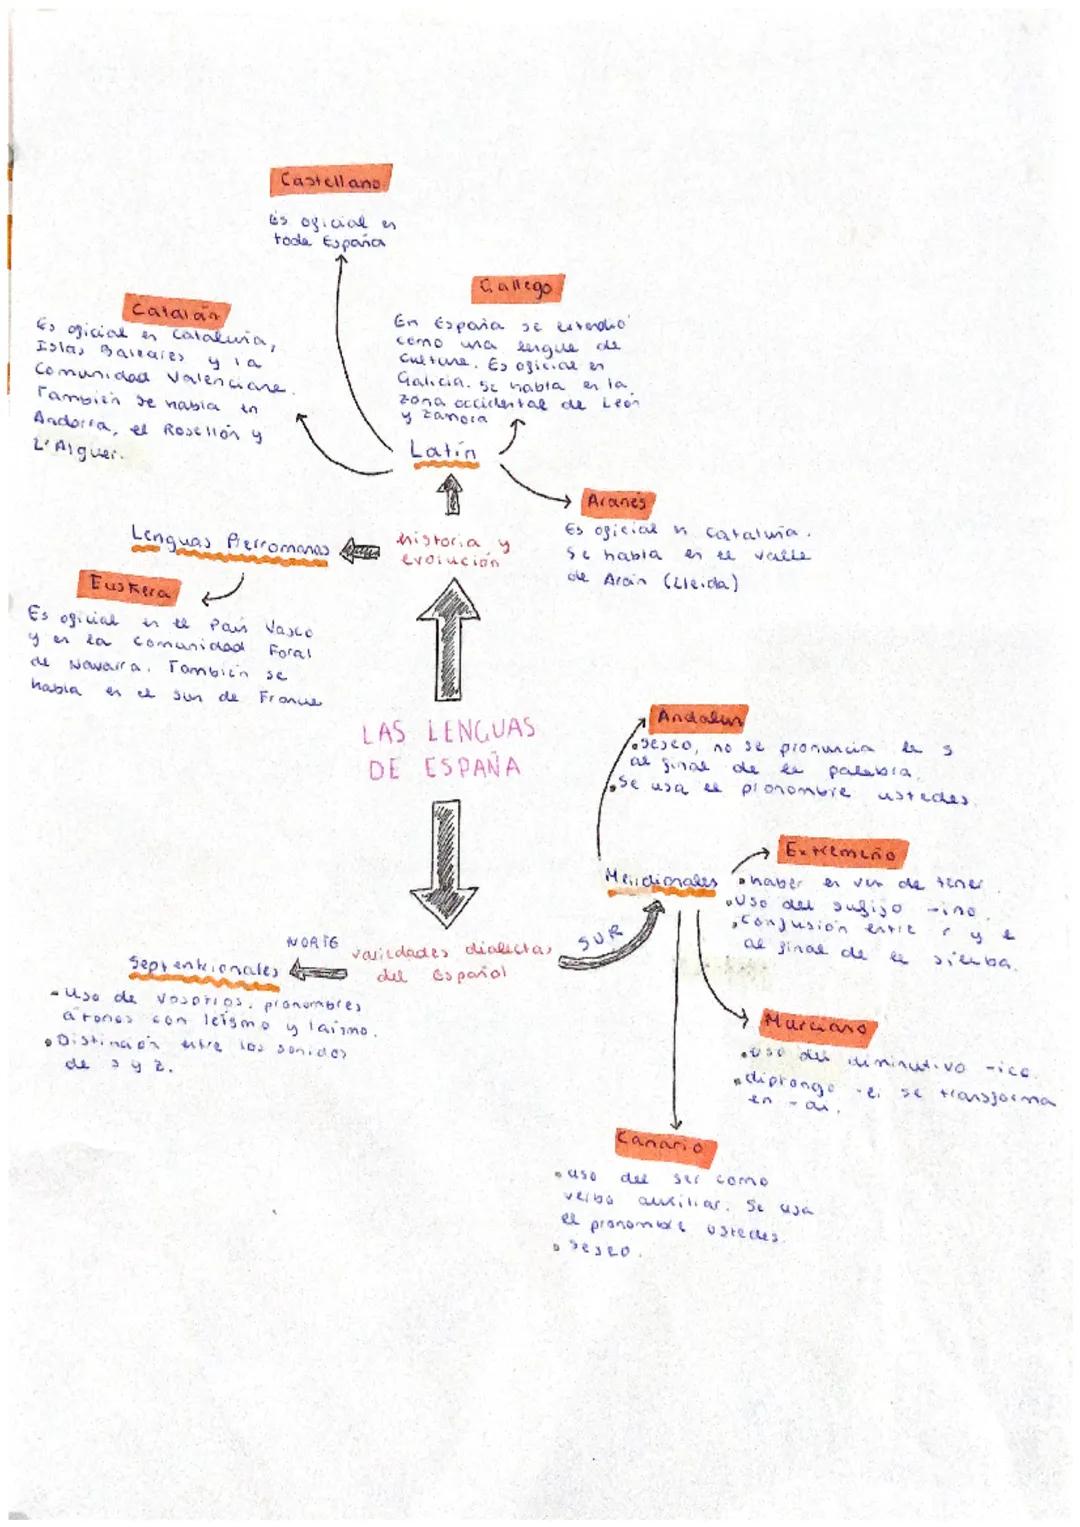 Castellano
Es oficial en
toda España
Gallego
En España se extendió
como una lengua de
cultura. Es oficial en
Galicia. Se habla en la
zona occidental de León
y Zamora
Catalán
Es oficial en Cataluña,
Islas Baleares y la
Comunidad Valenciana.
También se habla en
Andorra, el Rosellón y
L'Alguer.
Latín
Aranés
Es oficial en Cataluña.
Se habla en el valle
de Arán (Lleida)
Lenguas Prerromanas
historia y
evolución
Euskera
Es oficial en el País Vasco
y en la Comunidad Foral
de Navarra. También se
habla en el sur de Francia
LAS LENGUAS
DE ESPAÑA
Andaluz
• Seseo, no se pronuncia la s
al final de la palabra.
• Se usa el pronombre ustedes.
Extremeño
• haber en vez de tener.
• Uso del sufijo -ino.
• Confusión entre r y l
al final de la sílaba.
Meridionales
SUR
NORTE
variedades dialectas
del Español
Septentrionales
- Uso de vosotros, pronombres
átonos con leísmo y laísmo.
• Distinción entre los sonidos
de s y z.
Murciano
• uso del diminutivo -ico.
• diptongo -ei se transforma
en -ai.
Canario
• uso del ser como
verbo auxiliar. Se usa
el pronombre ustedes.
• Seseo.